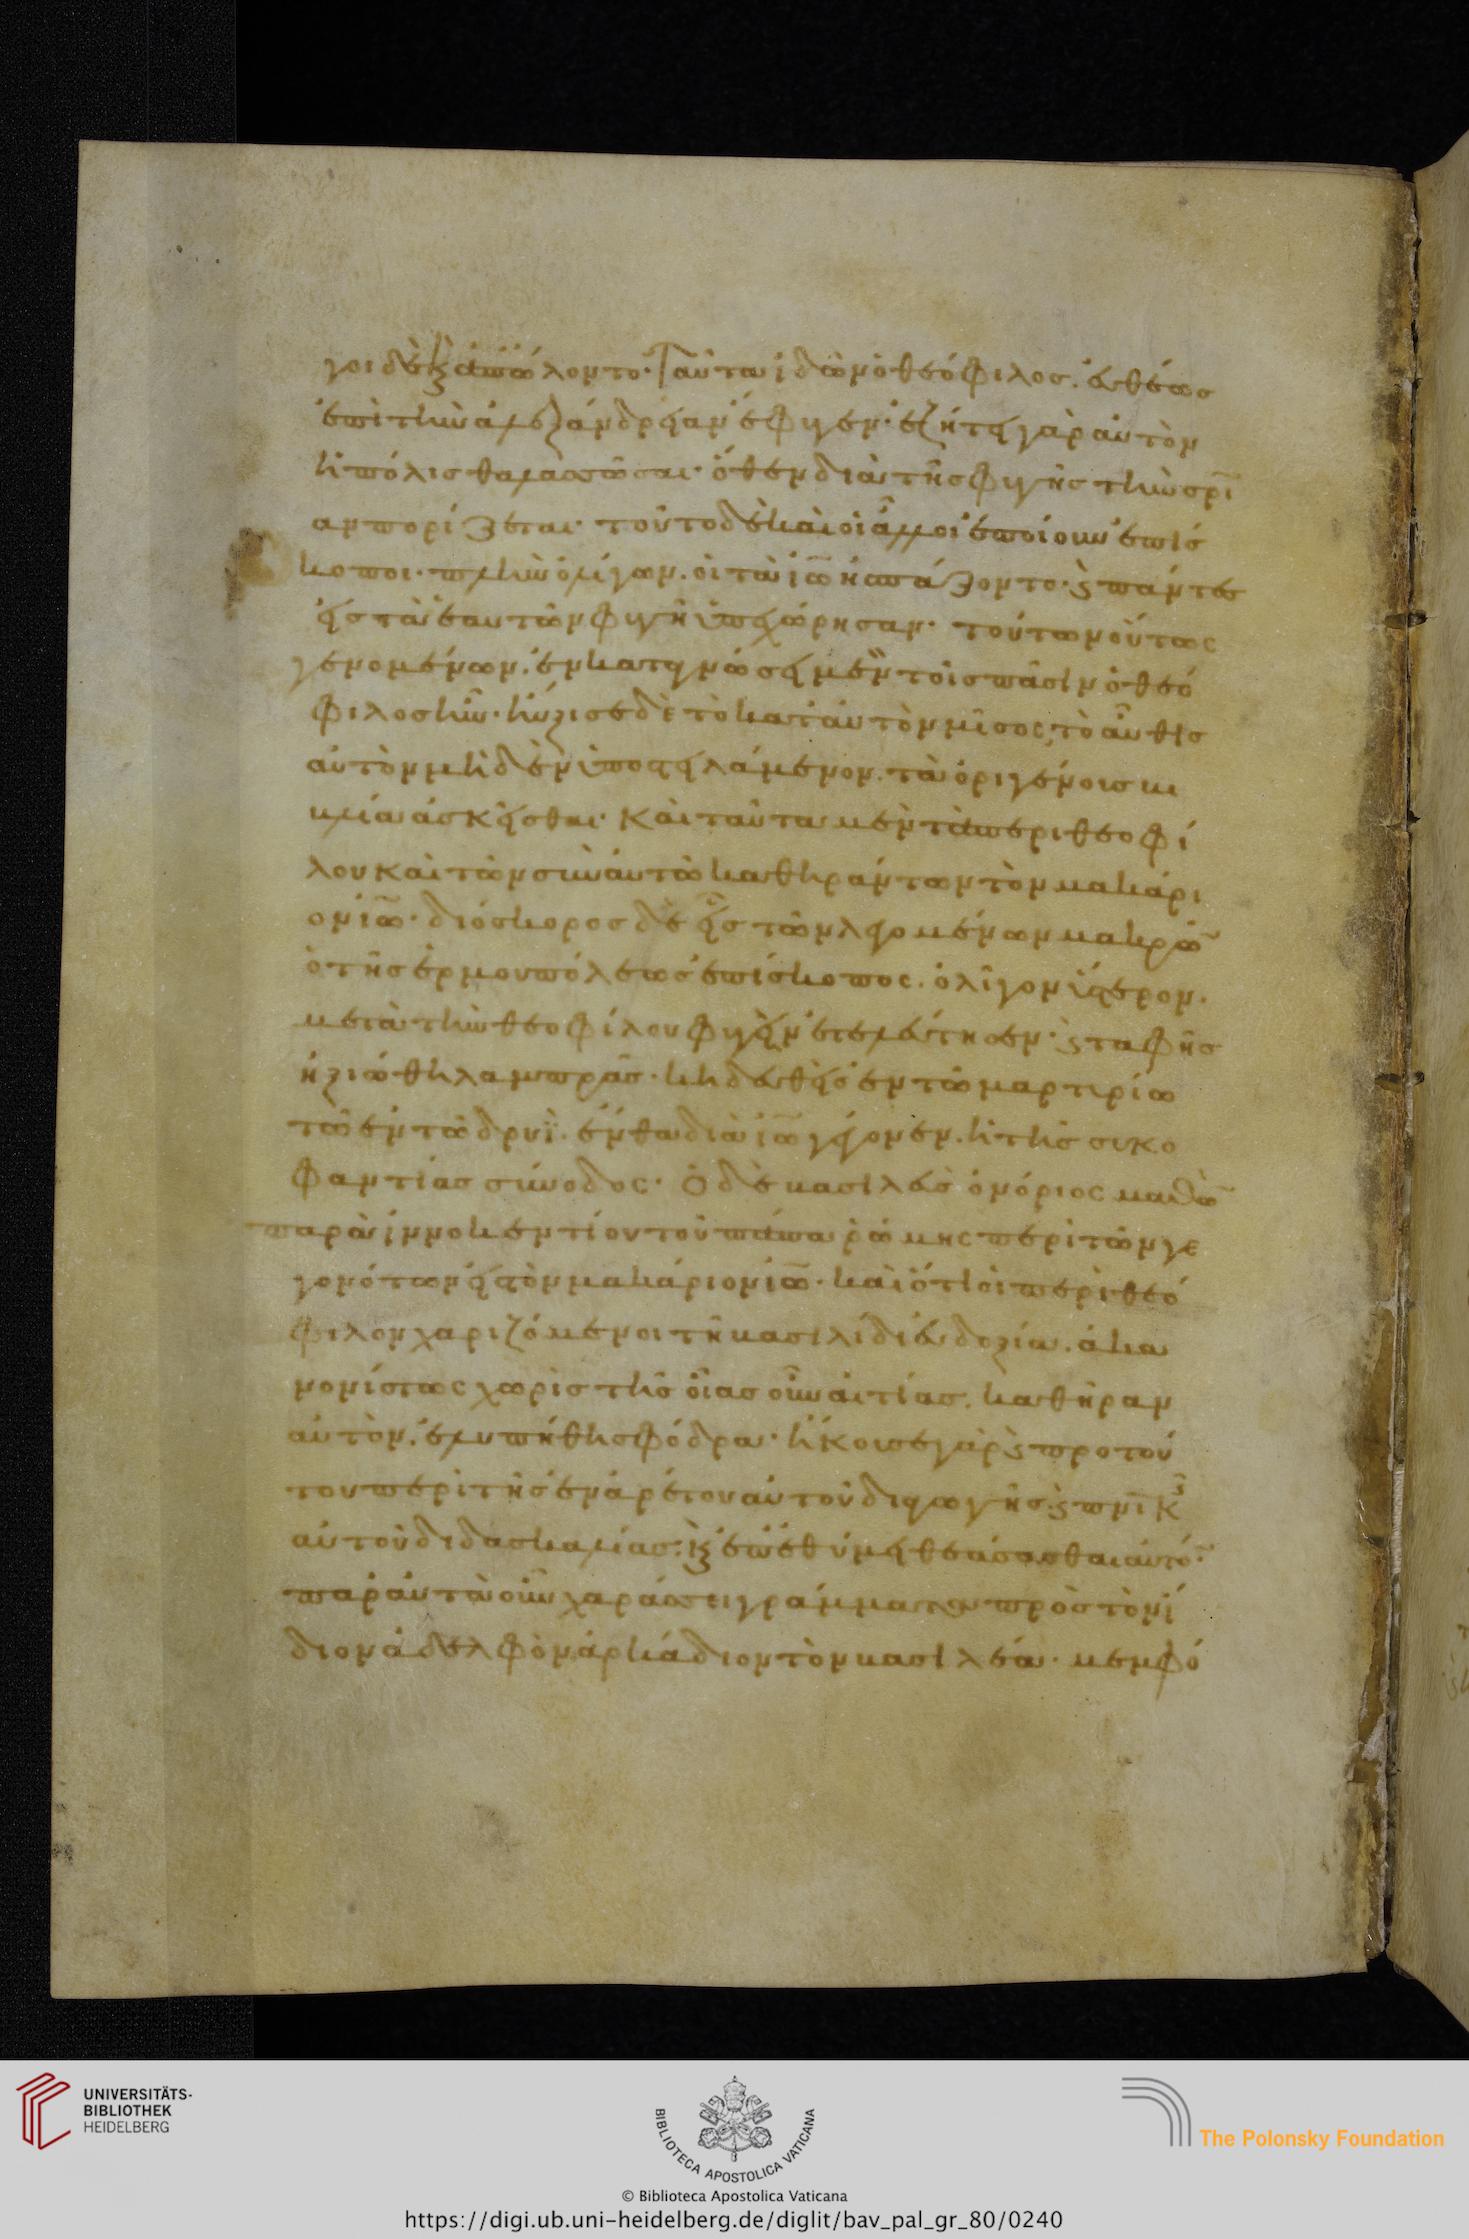 γοι δὲ καὶ ἀπώλοντο· Ταῦτα ἰδὼν ὁ θεόφιλος. εὐθέως
ἐπὶ τὴν ἀλεξάνδρειαν ἔφυγεν· ἐζήτει γὰρ αὐτὸν
ἡ πόλις θαλασσῶσαι· ὅθεν διὰ τῆς φυγῆς τὴν σρι
αν πορίζεται· τοῦτο δὲ καὶ οἱ ἄλλοι ἐποίουν ἐπίσ
κοποι· πλὴν ὀλίγων. οἱ τὰ ἰω ἠσπάζοντο· καὶ πάντες
εἰς τὰ ἑαυτῶν φυγῇ ὑπεχώρησαν· τούτων οὕτως
γενομένων. ἐν καταγνώσει μὲν τοῖς πᾶσιν ὁ θεό
φιλος ἦν· ηὔξισε δὲ τὸ κατ' αὐτὸν μῖσος, τὸ αὖθις
αὐτὸν μηδὲν ὑποστειλάμενον. τὰ ὀριγένοις βι
βλία ἀσκεῖσθαι· Καὶ ταῦτα μὲν τὰ περὶ θεοφί
λου καὶ τῶν σὺν αὐτῶ καθηράντων τὸν μακάρι
ον ἰω· διόσκορος δὲ εἷς τῶν λεγομένων μακρῶ
ὁ τῆς ἑρμουπόλεως ἐπίσκοπος. ὀλῖγον ὕστερον.
μετὰ τὴν θεοφίλου φυγεὴν ἐτελεύτησεν· καὶ ταφῆς
ἠξιώθη λαμπρᾶς· κηδευθεὶς ἐν τῶ μαρτυρίω
τῶ ἐν τῶ δρυῒ. ἔνθα διὰ ἰω γέγονεν. ἡ τῆς συκο
φαντίας σύνοδος· Ὁ δὲ βασιλεὺς ὁνόριος μαθὼ
παρὰ ἰννοκεντίου τοῦ πάπα ῥώμης περὶ τῶν γε
γονότων εἰς τὸν μακάριον ἰω· καὶ ὅτι οἱ περὶ θεό
φιλον χαριζόμενοι τῆ βασιλίδι εὐδοξία. ἀκα
νονίστως χωρὶς τῆς οἵας οὖν αἰτίας. καθῆραν
αὐτὸν. ἐλυπήθη σφόδρα· ἤκουσε γὰρ καὶ προ τού
του περὶ τῆς ἐναρέτου αὐτοῦ διαγωγῆς. καὶ πνικ
αὐτοῦ διδασκαλίας. καὶ ἐπεθύμει θεάσασθαι αὐτό
παρ' αὐτὰ οὖν χαράσσει γράμματα πρὸς τὸν ἴ
διον ἀδελφὸν ἀρκάδιον τὸν βασιλέα· μεμφό
UNIVERSITÄTS-
BIBLIOTHEK
HEIDELBERG
BIBLIOTECA APOSTOLICA VATICANA
The Polonsky Foundation
© Biblioteca Apostolica Vaticana
https://digi.ub.uni-heidelberg.de/diglit/bav_pal_gr_80/0240